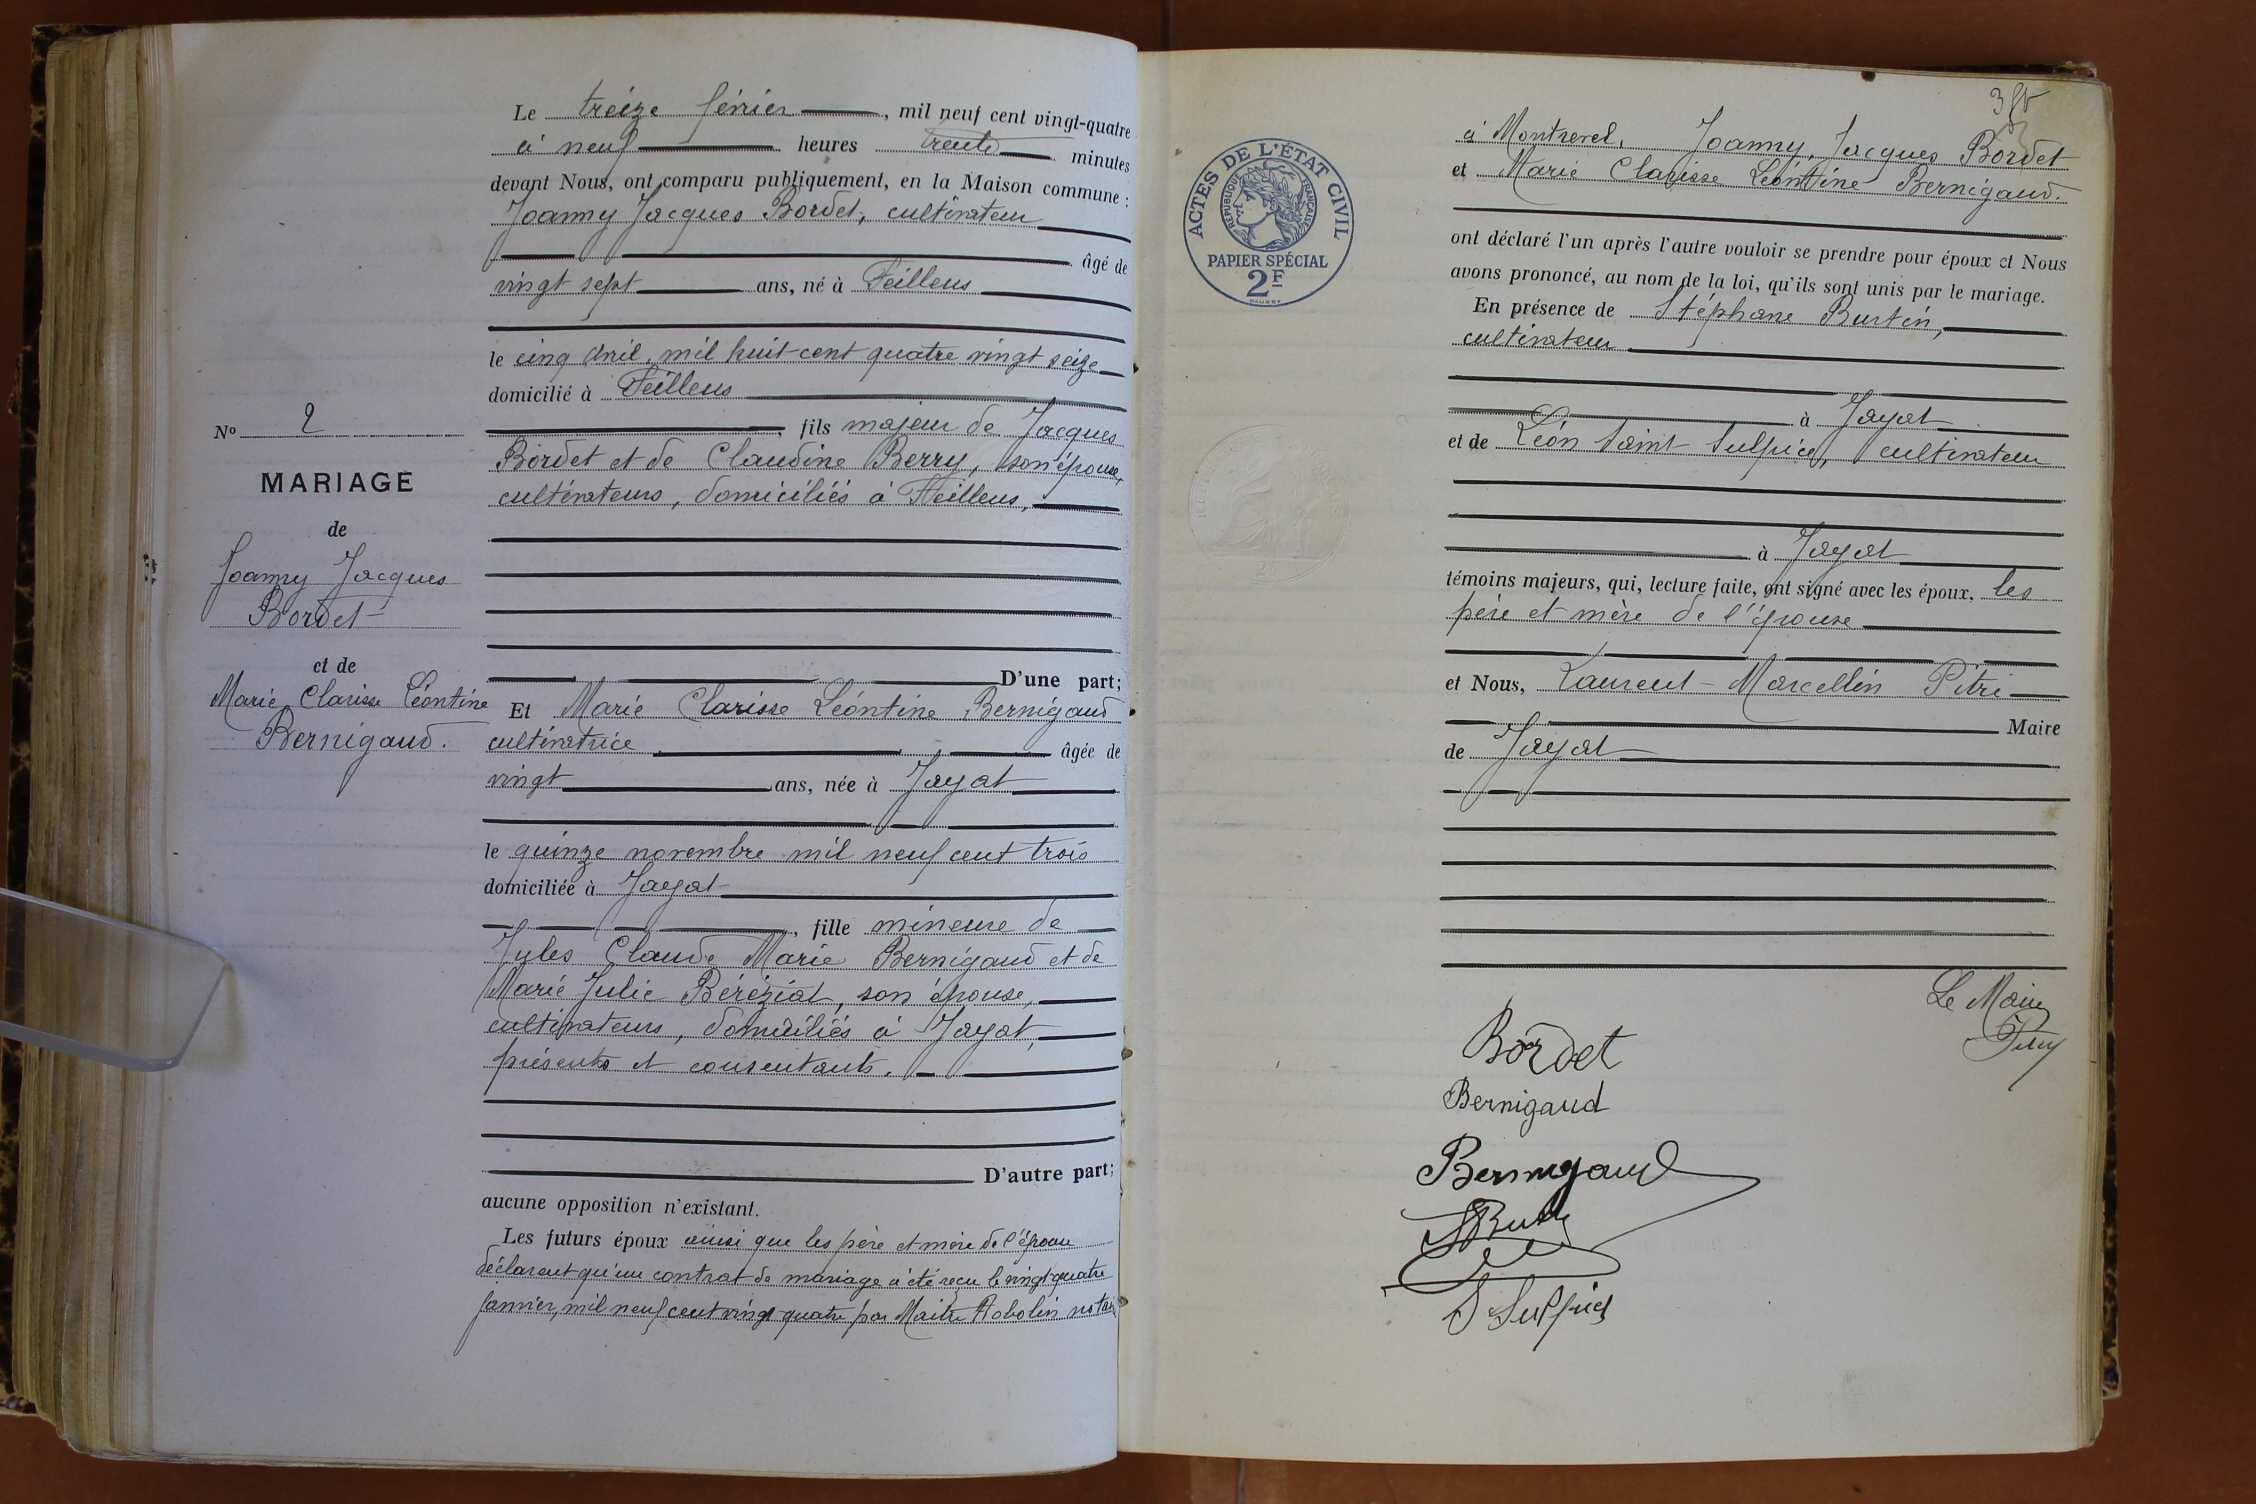 Le treize février, mil neuf cent vingt-quatre
à neuf heures trente minutes
devant Nous, ont comparu publiquement, en la Maison commune :
Joanny Jacques Bordet, cultivateur
âgé de
vingt sept ans, né à Feillens
le cinq Avril, mil huit cent quatre vingt seize
domicilié à Feillens
, fils majeur de Jacques
Bordet et de Claudine Berry, son épouse,
cultivateurs, domiciliés à Feillens,
D'une part;
Et Marie Clarisse Léontine Bernigaud
cultivatrice âgée de
vingt ans, née à Jayat
le quinze novembre mil neuf cent trois
domiciliée à Jayat
, fille mineure de
Jules Claude Marie Bernigaud et de
Marie Julie Béréziat, son épouse,
cultivateurs, domiciliés à Jayat,
présents et consentants.
D'autre part;
aucune opposition n'existant.
Les futurs époux ainsi que les père et mère de l'épouse
déclarent qu'un contrat de mariage a été reçu le vingt quatre
janvier, mil neuf cent vingt quatre par Maître notaire
No 2
MARIAGE
de
Joanny Jacques
Bordet
et de
Marie Clarisse Léontine
Bernigaud.
ACTES DE L'ÉTAT CIVIL
RÉPUBLIQUE FRANÇAISE
PAPIER SPÉCIAL
2F
à Montrevel. Joanny, Jacques Bordet
et Marie Clarisse Léontine Bernigaud.
ont déclaré l'un après l'autre vouloir se prendre pour époux et Nous
avons prononcé, au nom de la loi, qu'ils sont unis par le mariage.
En présence de Stéphane Burtin,
cultivateur
à Jayat
et de Léon Saint Sulpice, cultivateur
à Jayat
témoins majeurs, qui, lecture faite, ont signé avec les époux, les
père et mère de l'épouse
et Nous, Laurent Marcellin Pitri
Maire
de Jayat
Le Maire
Bordet
Bernigaud
Bernigaud
S Sulpice